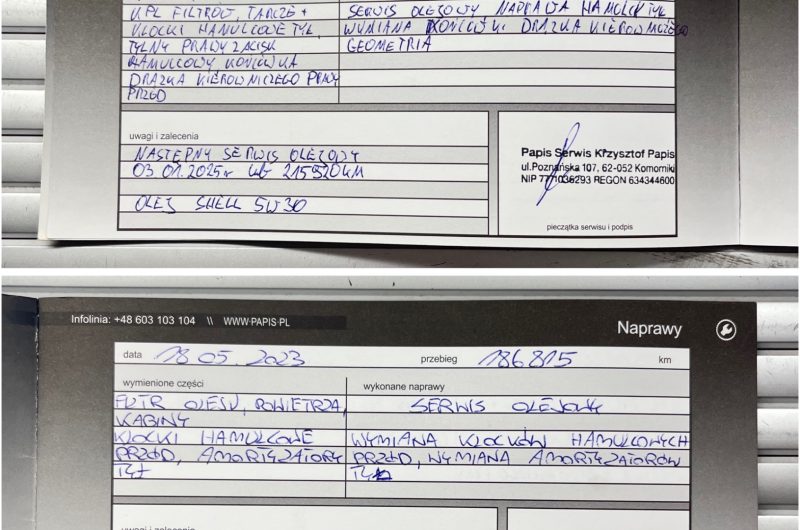 KPL FILTRÓW, TARCZE + SERWIS OLEJOWY NAPRAWA HAMULCY TYŁ
KLOCKI HAMULCOWE TYŁ, WYMIANA KOŃCÓWKI DRĄŻKA KIEROWNICZEGO
TYLNY PRAWY ZACISK GEOMETRIA
HAMULCOWY KOŃCÓWKA
DRĄŻKA KIEROWNICZEGO PRAWY
PRZÓD
uwagi i zalecenia
NASTĘPNY SERWIS OLEJOWY
03.01.2025r lub 215920KM
OLEJ SHELL 5W30
Papis Serwis Krzysztof Papis
ul.Poznańska 107, 62-052 Komorniki
NIP 7771036293 REGON 634344600
pieczątka serwisu i podpis
Infolinia: +48 603 103 104 \\ WWW.PAPIS.PL
Naprawy
data 18 05. 2023 przebieg 186.815 km
wymienione części wykonane naprawy
FILTR OLEJU, POWIETRZA, SERWIS OLEJOWY
KABINY
KLOCKI HAMULCOWE WYMIANA KLOCKÓW HAMULCOWYCH
PRZÓD, AMORTYZATORY PRZÓD, WYMIANA AMORTYZATORÓW
TYŁ TYŁ